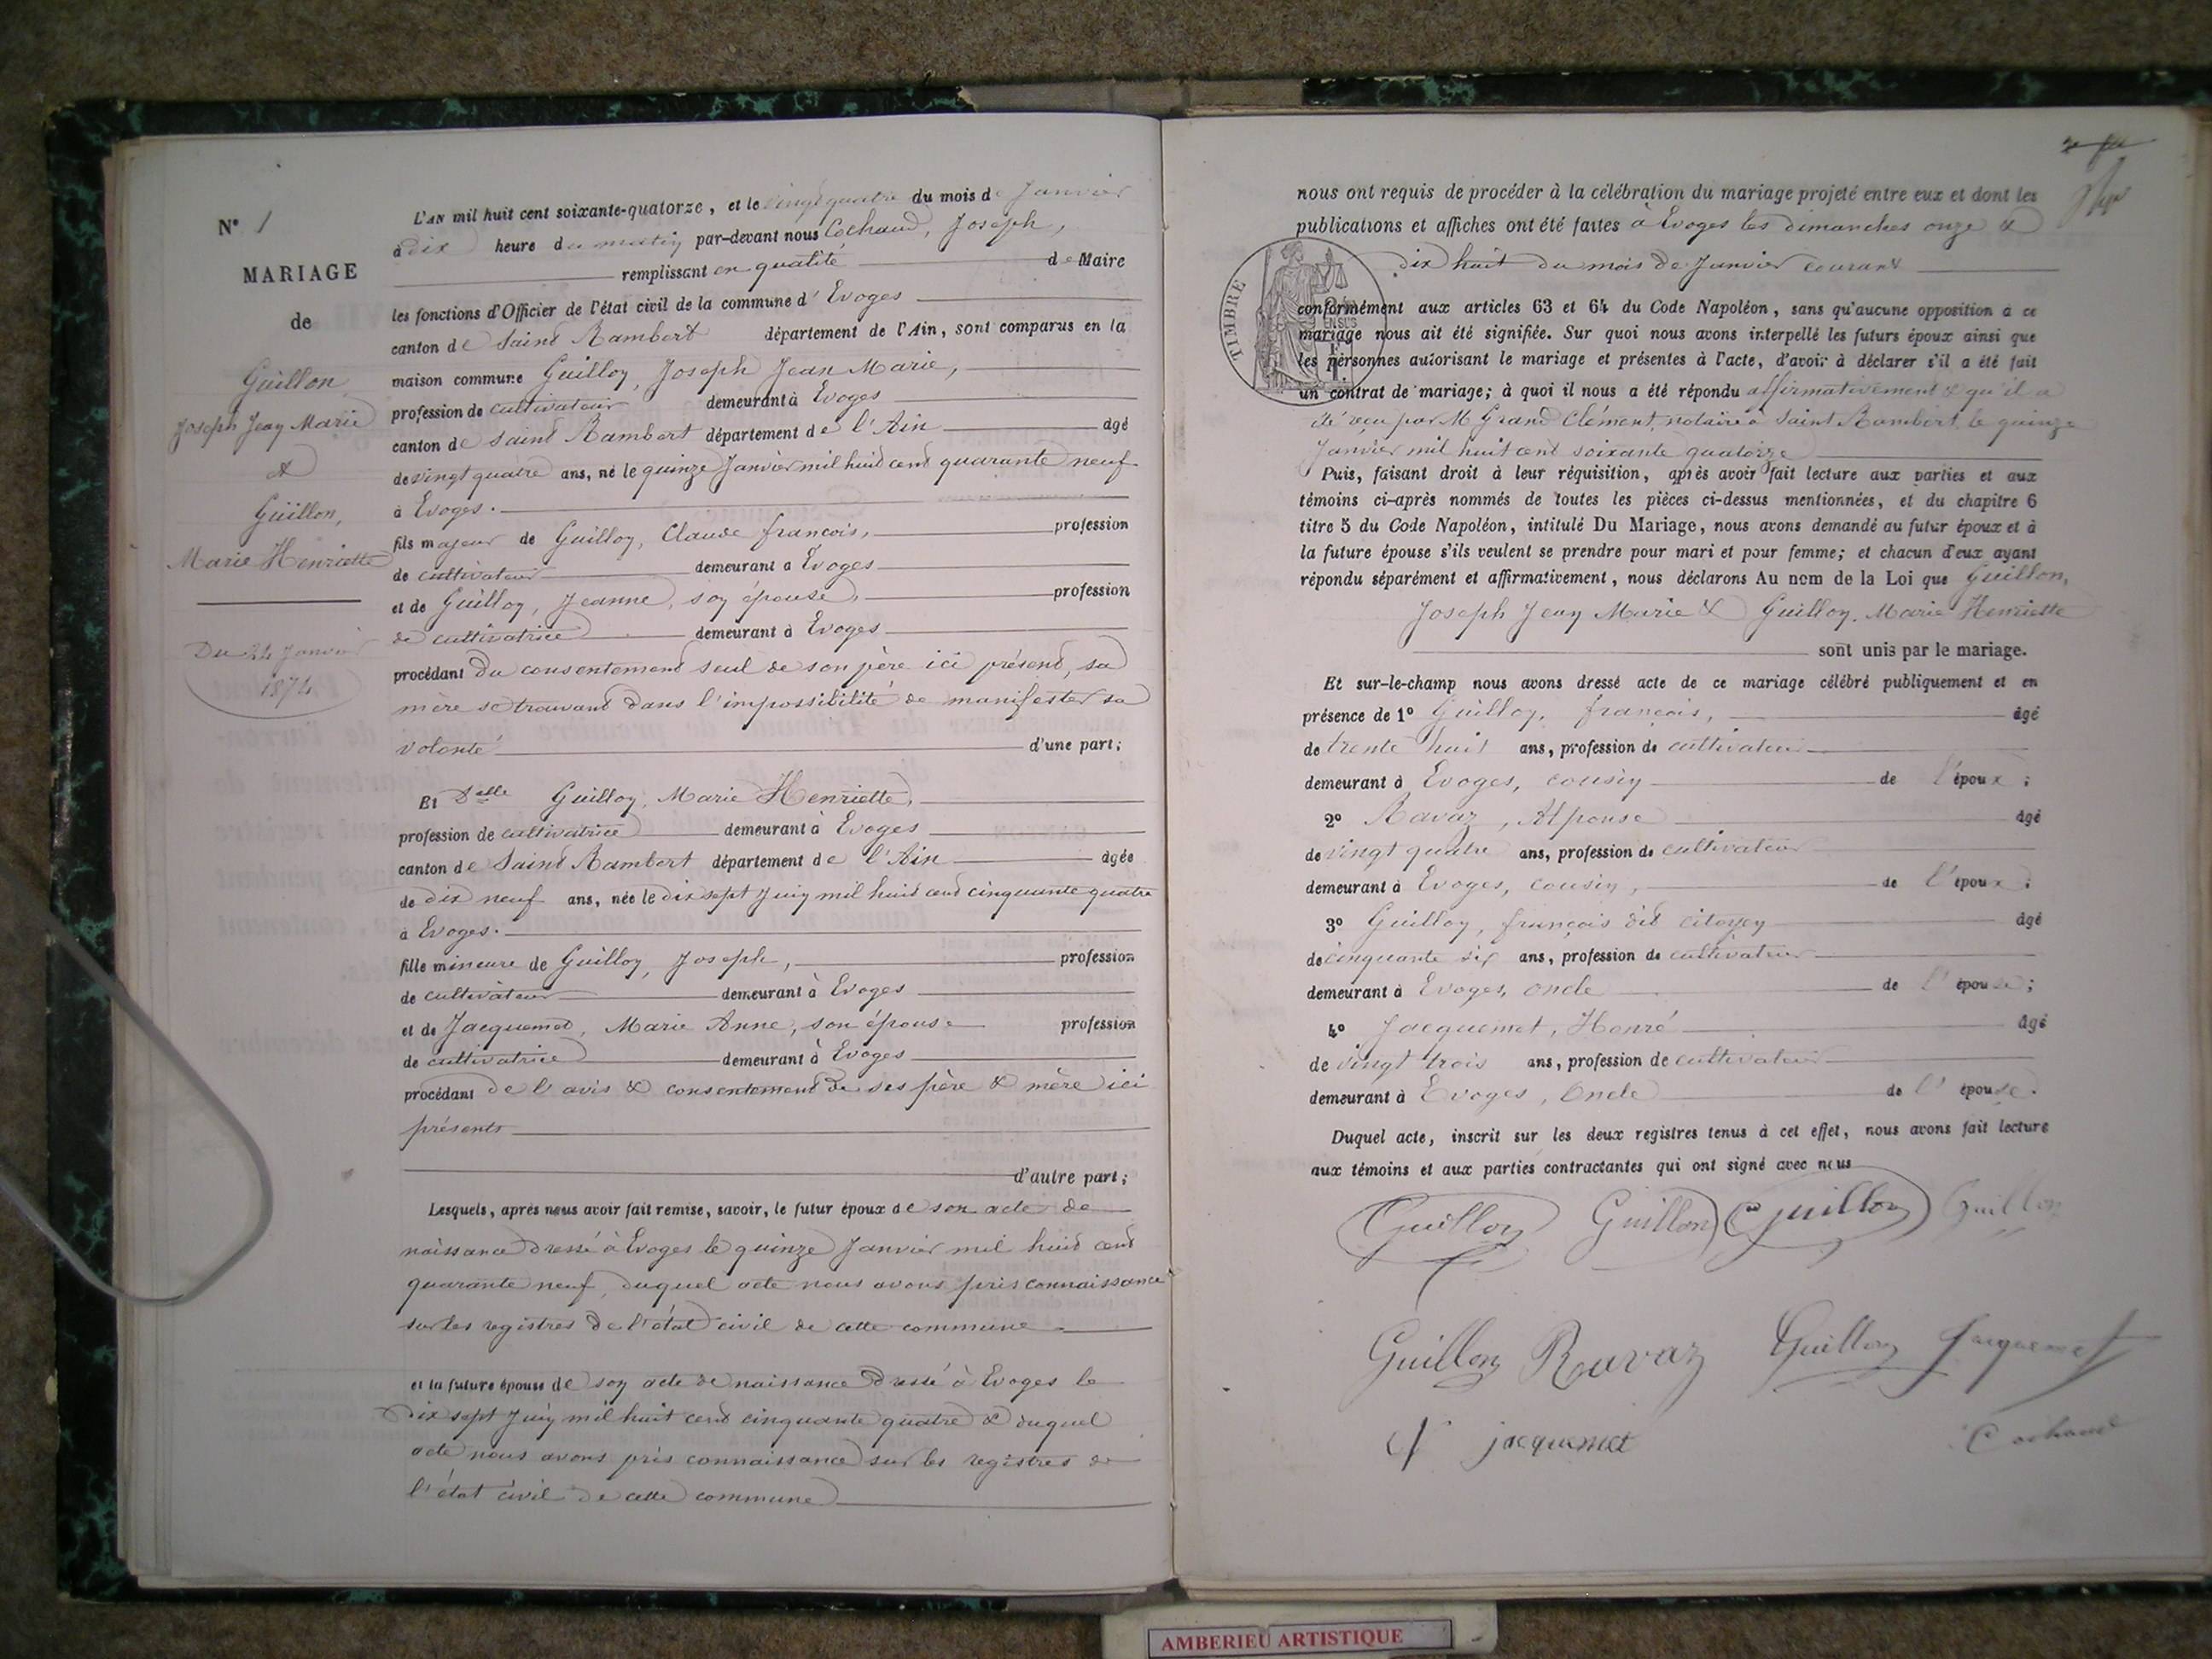 N° 1
MARIAGE
de
Guillon,
Joseph Jean Marie
&
Guillon,
Marie Henriette
Du 24 Janvier
1874
L'AN mil huit cent soixante-quatorze, et le vingt quatre du mois de Janvier
à dix heure du matin par-devant nous Cochaud, Joseph,
remplissant en qualité de Maire
les fonctions d'Officier de l'état civil de la commune d'Evoges
canton de Saint Rambert département de l'Ain, sont comparus en la
maison commune Guillon, Joseph Jean Marie,
profession de cultivateur demeurant à Evoges
canton de Saint Rambert département de l'Ain âgé
de vingt quatre ans, né le quinze Janvier mil huit cent quarante neuf
à Evoges.
fils majeur de Guillon, Claude françois, profession
de cultivateur demeurant à Evoges
et de Guillon, Jeanne, son épouse, profession
de cultivatrice demeurant à Evoges
procédant du consentement seul de son père ici présent, sa
mère se trouvant dans l'impossibilité de manifester sa
volonté d'une part;
Et Delle Guillon, Marie Henriette,
profession de cultivatrice demeurant à Evoges
canton de Saint Rambert département de l'Ain âgée
de dix neuf ans, née le dix sept Juin mil huit cent cinquante quatre
à Evoges.
fille mineure de Guillon, Joseph, profession
de cultivateur demeurant à Evoges
et de Jacquemet, Marie Anne, son épouse profession
de cultivatrice demeurant à Evoges
procédant de l'avis & consentement de ses père & mère ici
présents
d'autre part;
Lesquels, après nous avoir fait remise, savoir, le futur époux de son acte de
naissance dressé à Evoges le quinze Janvier mil huit cent
quarante neuf, duquel acte nous avons pris connaissance
sur les registres de l'état civil de cette commune
et la future épouse de son acte de naissance dressé à Evoges le
dix sept Juin mil huit cent cinquante quatre & duquel
acte nous avons pris connaissance sur les registres de
l'état civil de cette commune
nous ont requis de procéder à la célébration du mariage projeté entre eux et dont les
publications et affiches ont été faites à Evoges les dimanches onze &
dix huit du mois de Janvier courant
TIMBRE
conformément aux articles 63 et 64 du Code Napoléon, sans qu'aucune opposition à ce
mariage nous ait été signifiée. Sur quoi nous avons interpellé les futurs époux ainsi que
les personnes autorisant le mariage et présentes à l'acte, d'avoir à déclarer s'il a été fait
un contrat de mariage; à quoi il nous a été répondu affirmativement & qu'il a
été reçu par M Grand Clément, notaire à Saint Rambert, le quinze
Janvier mil huit cent soixante quatorze
Puis, faisant droit à leur réquisition, après avoir fait lecture aux parties et aux
témoins ci-après nommés de toutes les pièces ci-dessus mentionnées, et du chapitre 6
titre 5 du Code Napoléon, intitulé Du Mariage, nous avons demandé au futur époux et à
la future épouse s'ils veulent se prendre pour mari et pour femme; et chacun d'eux ayant
répondu séparément et affirmativement, nous déclarons Au nom de la Loi que Guillon,
Joseph Jean Marie & Guillon, Marie Henriette
sont unis par le mariage.
Et sur-le-champ nous avons dressé acte de ce mariage célébré publiquement et en
présence de 1° Guillon, françois, âgé
de trente huit ans, profession de cultivateur
demeurant à Evoges, cousin de l'époux;
2° Ravaz, Alponse âgé
de vingt quatre ans, profession de cultivateur
demeurant à Evoges, cousin, de l'époux;
3° Guillon, françois dit citoyen âgé
de cinquante six ans, profession de cultivateur
demeurant à Evoges, oncle de l'épouse;
4° Jacquemet, Honré âgé
de vingt trois ans, profession de cultivateur
demeurant à Evoges, Oncle de l'épouse.
Duquel acte, inscrit sur les deux registres tenus à cet effet, nous avons fait lecture
aux témoins et aux parties contractantes qui ont signé avec nous
Guillon Guillon Guillon Guillon
Guillon Ravaz Guillon Jacquemet
jacquemet Cochaud
AMBERIEU ARTISTIQUE